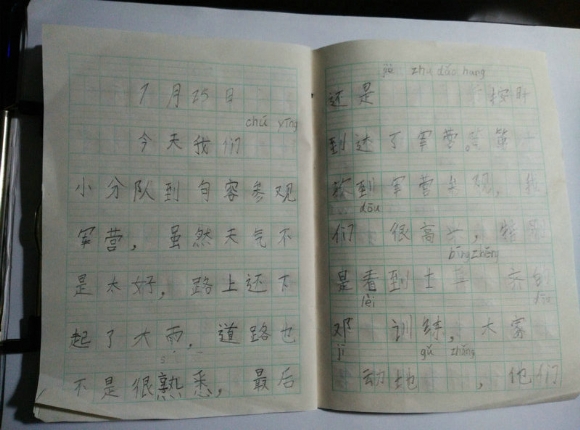 7月25日
chú yīng
今天我们
小分队到句容参观
军营，虽然天气不
是太好，路上还下
起了大雨，道路也
不是很熟悉，最后
zhu dǎo hang
还是 按时
到达了军营。第一
次到军营参观，我
dōu
们 很高兴，特别
bīng
是看到士
训练，大家
jī gǔ zhǎng
动地 ，他们